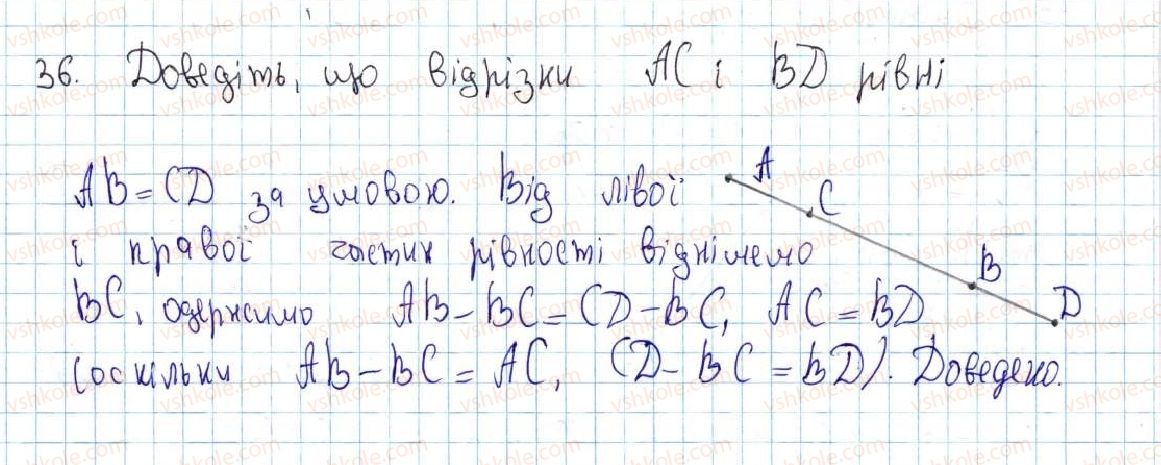 36. Доведіть, що відрізки AC і BD рівні
AB = CD за умовою. Від лівої
і правої частин рівності віднімемо
BC, одержимо AB - BC = CD - BC, AC = BD
(оскільки AB - BC = AC, CD - BC = BD). Доведено.
A
C
B
D
vshkole.com